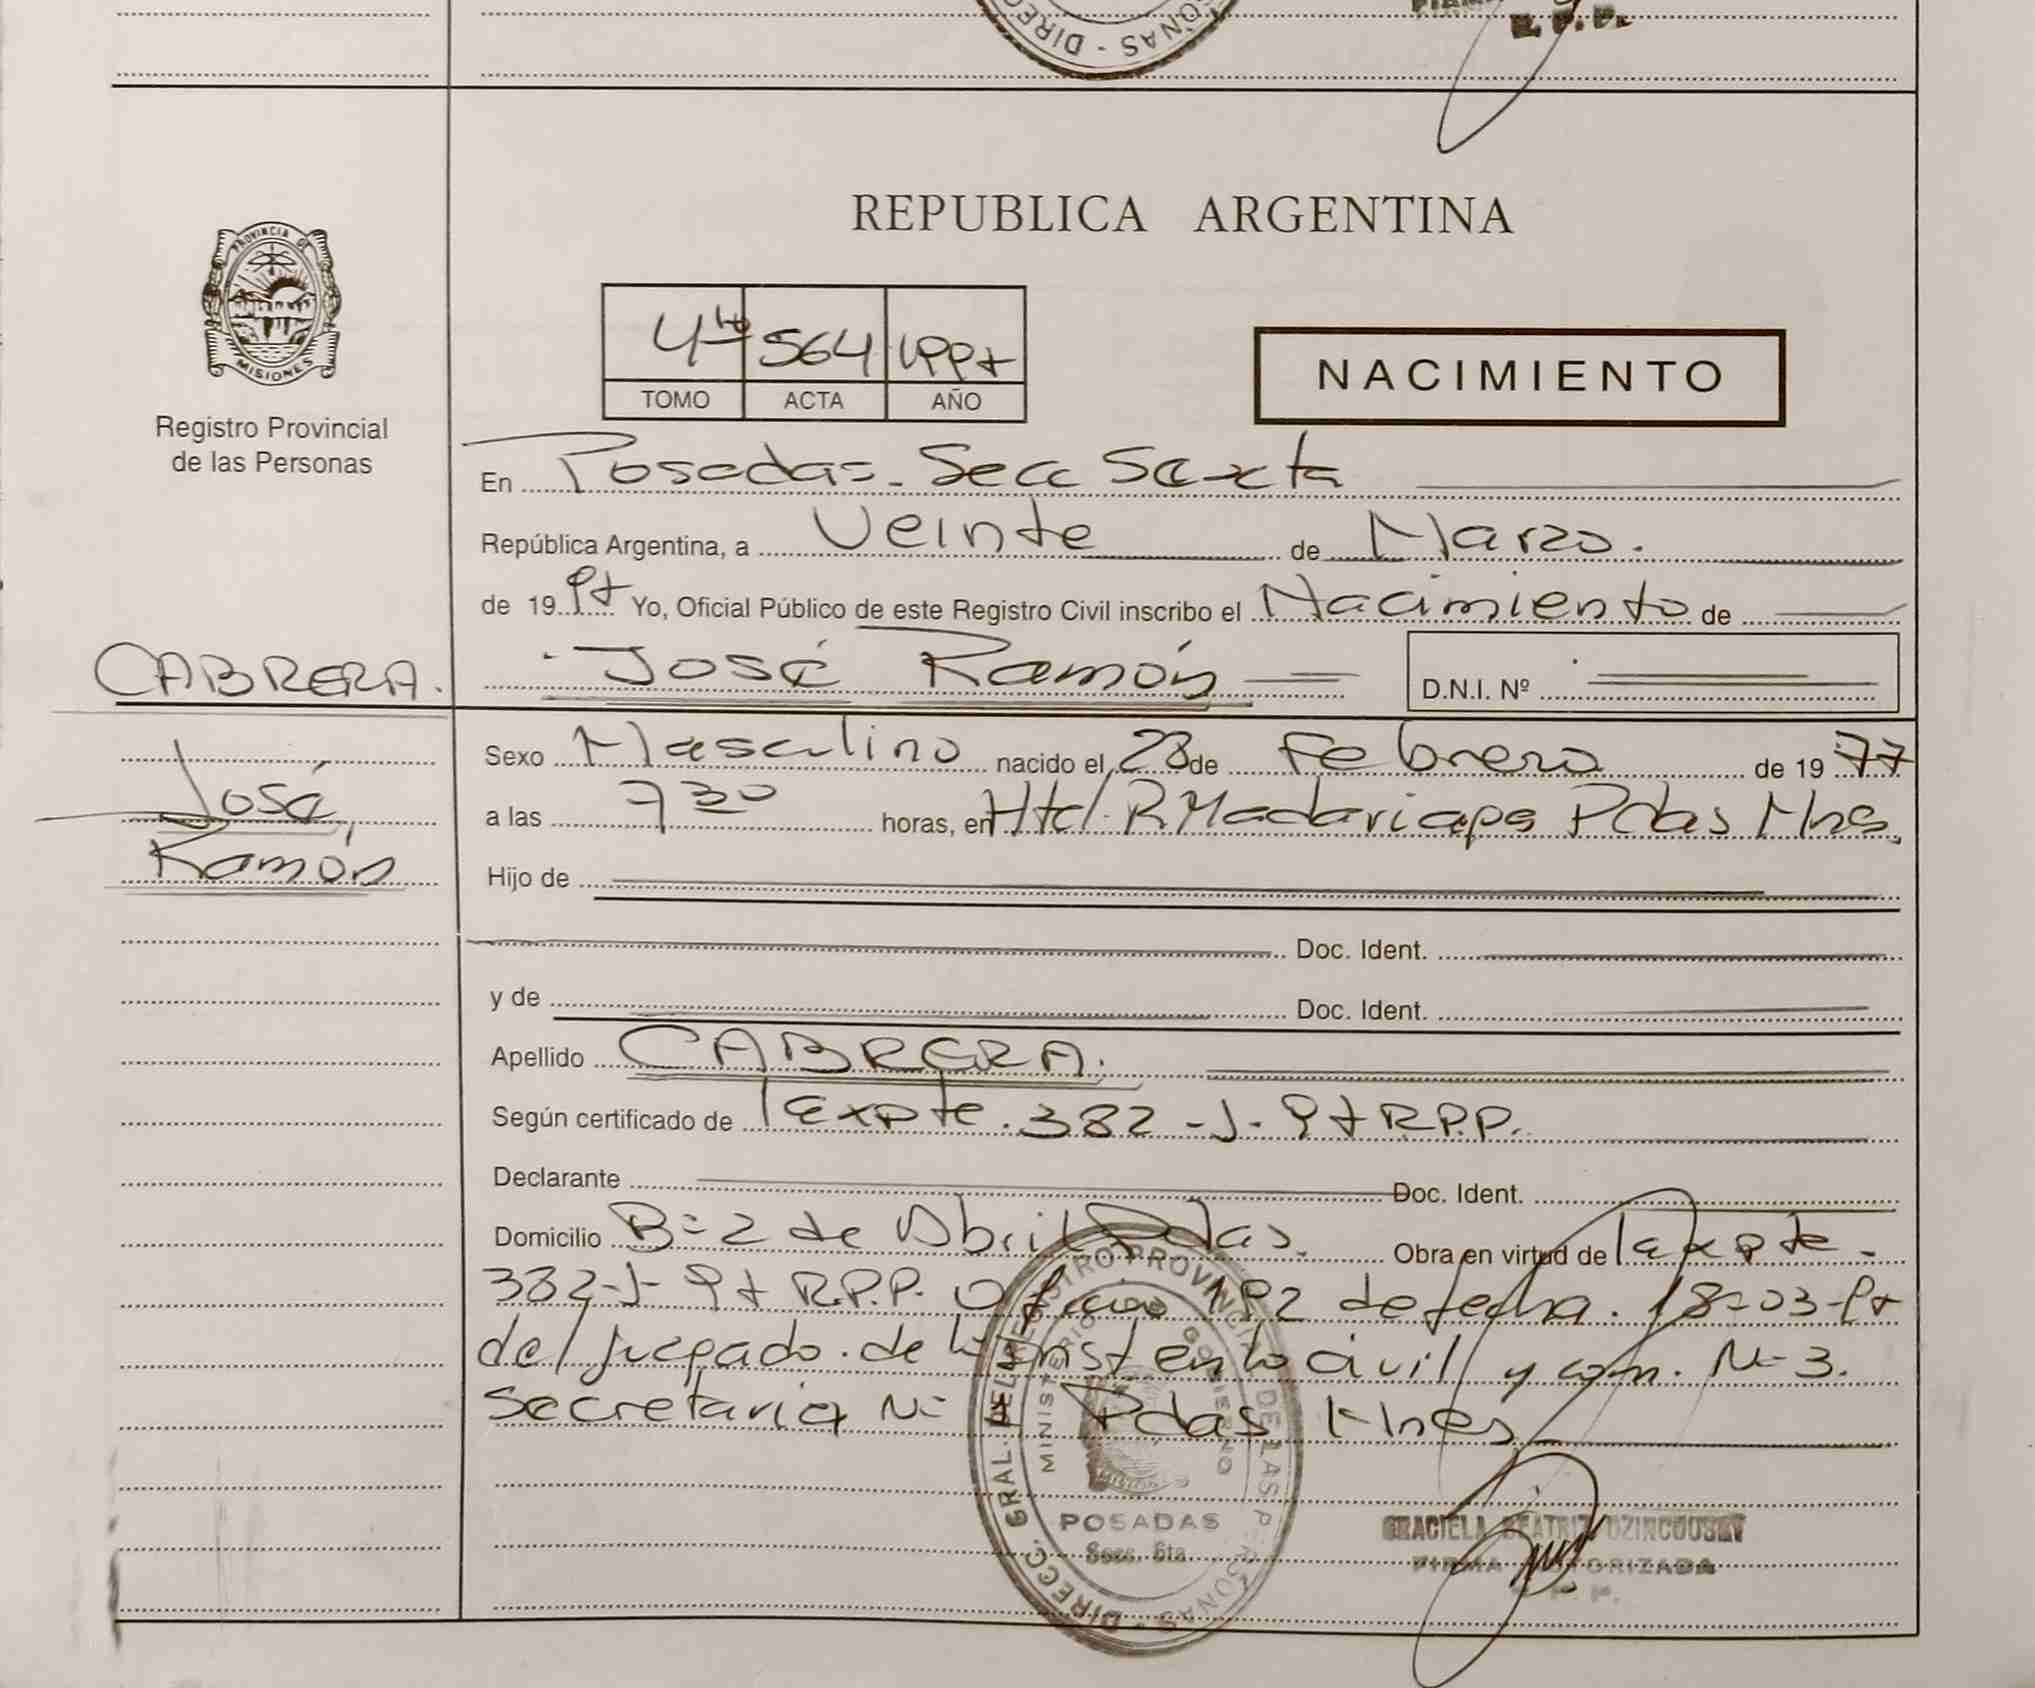 DIREC
SONAS - DIREC
R. P. P.
PROVINCIA DE
MISIONES
Registro Provincial
de las Personas
REPUBLICA ARGENTINA
4to 564 1997
TOMO ACTA AÑO
NACIMIENTO
En Posadas - Secc Sexta
República Argentina, a Veinte de Marzo.
de 19 97 Yo, Oficial Público de este Registro Civil inscribo el Nacimiento de
CABRERA. José Ramón D.N.I. Nº
José
Ramón
Sexo Masculino nacido el 28 de Febrero de 19 77
a las 7 30 horas, en Htal. R Madariaga Pdas Mnes
Hijo de
Doc. Ident.
y de Doc. Ident.
Apellido CABRERA.
Según certificado de Expte. 382 - J - 97 R.P.P.
Declarante Doc. Ident.
Domicilio B= 2 de Abril Pdas. Obra en virtud de Expte.
382-J- 97 R.P.P. Oficio 192 de fecha. 18-03-97
del juzgado. de 1o Inst en lo civil y com. N= 3.
Secretaria N= Pdas Mnes
DIRECC. GRAL. DEL REGISTRO PROVINCIAL DE LAS PERSONAS
MINISTERIO DE GOBIERNO
POSADAS
Secc. 6ta
GRACIELA BEATRIZ
FIRMA AUTORIZADA
R. P. P.